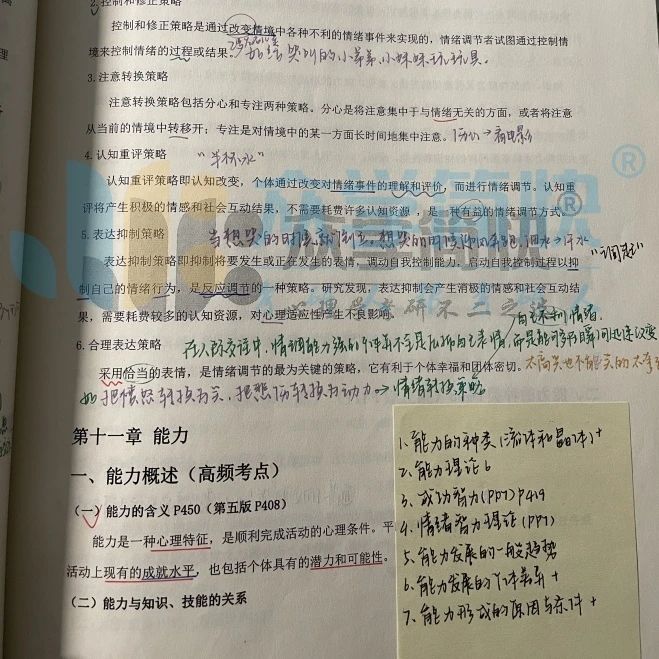 2.控制和修正策略
控制和修正策略是通过改变情境中各种不利的情绪事件来实现的，情绪调节者试图通过控制情
境来控制情绪的过程或结果。
如给哭叫的小弟弟、小妹妹玩玩具。
3.注意转换策略
注意转换策略包括分心和专注两种策略。分心是将注意集中于与情绪无关的方面，或者将注意
从当前的情境中转移开；专注是对情境中的某一方面长时间地集中注意。分心→看电影
4.认知重评策略 "半杯水"
认知重评策略即认知改变，个体通过改变对情绪事件的理解和评价，而进行情绪调节。认知重
评将产生积极的情感和社会互动结果，不需要耗费许多认知资源，是一种有益的情绪调节方式。
5.表达抑制策略
当想哭的时候
表达抑制策略即抑制将要发生或正在发生的表情，调动自我控制能力，启动自我控制过程以抑
制自己的情绪行为，是反应调节的一种策略。研究发现，表达抑制会产生消极的情感和社会互动结
果，需要耗费较多的认知资源，对心理适应性产生不良影响。
6.合理表达策略
在人际交往中，情调能力强的个体
采用恰当的表情，是情绪调节的最为关键的策略，它有利于个体幸福和团体密切。
如把愤怒转换为 把悲伤转换为动力→情绪转换策略
第十一章 能力
一、能力概述（高频考点）
（一）能力的含义 P450（第五版 P408）
能力是一种心理特征，是顺利完成活动的心理条件。
活动上现有的成就水平，也包括个体具有的潜力和可能性。
（二）能力与知识、技能的关系
1、能力的种类（流体和晶体）+
2、能力理论 6
3、成功智力(PPT) P419
4、情绪智力理论(PPT)
5、能力发展的一般趋势
6、能力发展的个体差异 +
7、能力形成的原因与条件 +